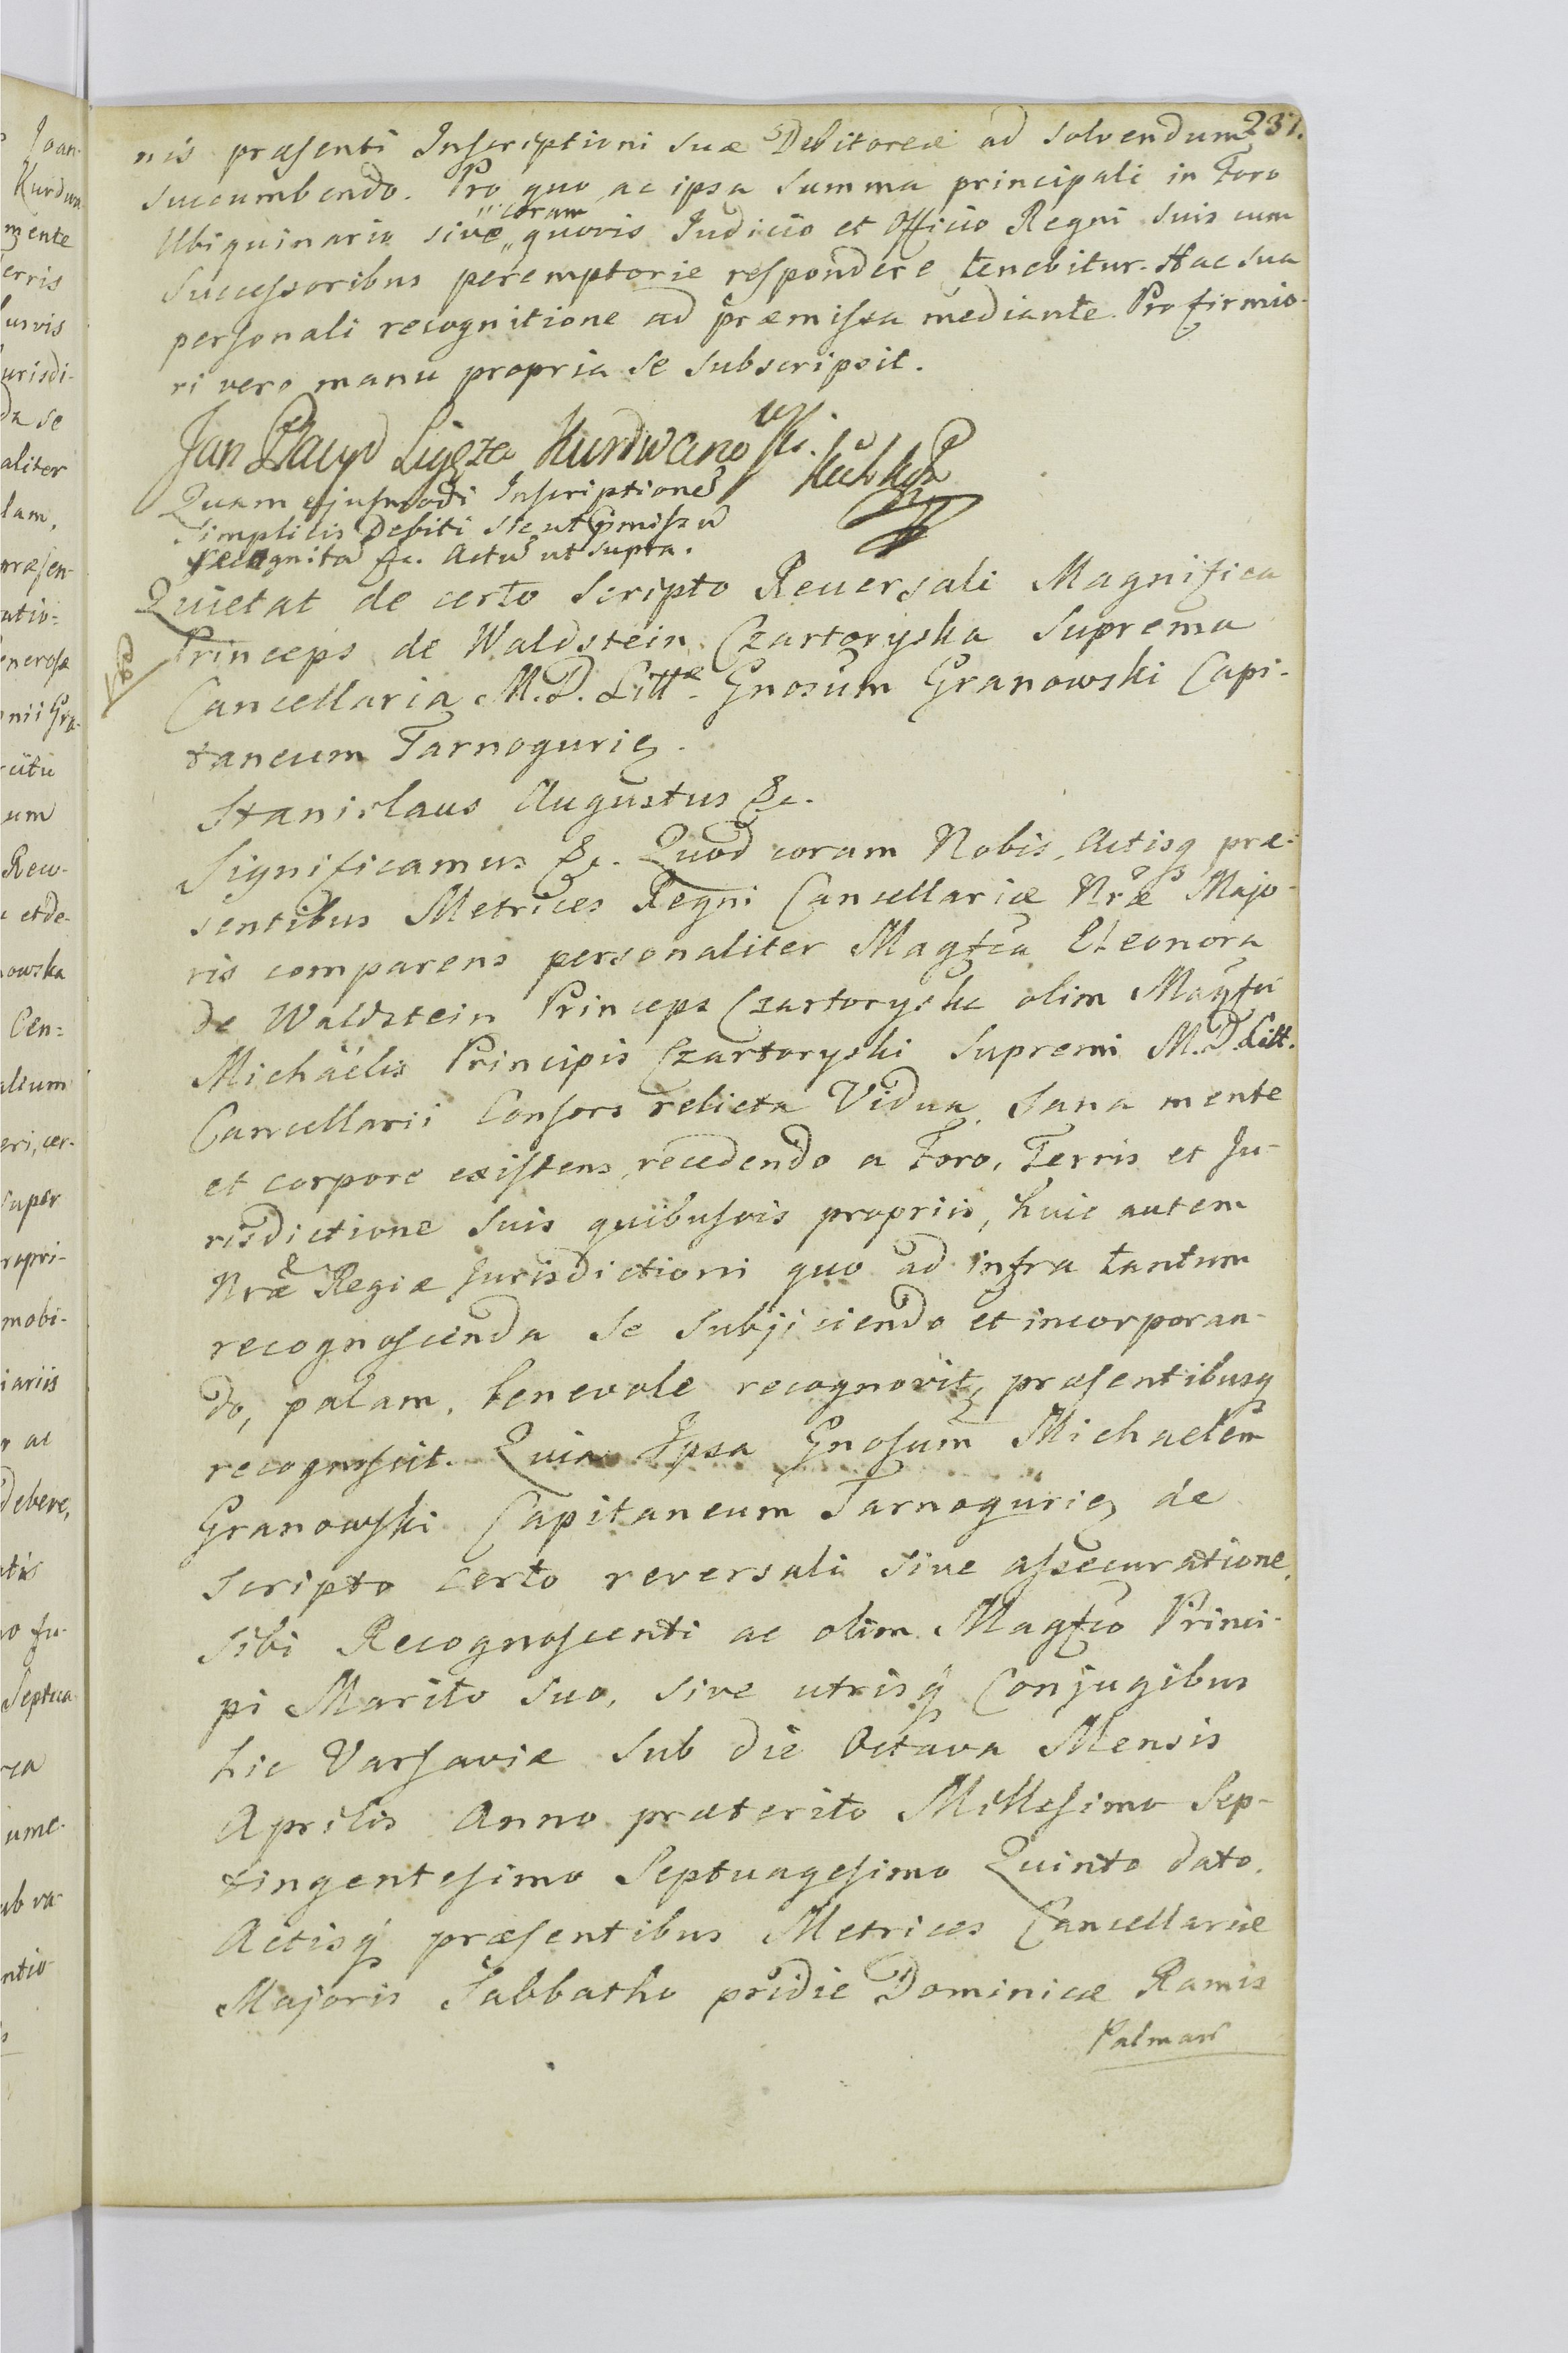 231.
nis præsenti Inscriptioni suæ Debitoreæ ad solvendum
succumbendo. Pro quo ac ipsa Summa principali in Foro
Ubiquinario sive coram quovis Judicio et Officio Regni suis cum
Successoribus peremptorie respondere tenebitur. Hac sua
personali recognitione ad præmissa mediante. Pro firmio-
ri vero manu propria se subscripsit.
Jan Dawyd Ligęza Kurdwanowski.
Quam ejusmodi Inscriptionē
Simplicis Debiti sic ut p̄missū
recognitā &c. Actū ut supra.
Quietat de certo Scripto Reversali Magnifica
Princeps de Waldstein Czartoryska Suprema
Cancellaria M. D. Littæ. Gnosum Granowski Capi-
taneum Tarnogurię.
Stanislaus Augustus &c.
Significamus &c. Quod coram Nobis, Actisq præ-
sentibus Metrices Regni Cancellariæ Nræ Majo-
ris comparens personaliter Magfca Eleonora
de Waldstein Princeps Czartoryska olim Magfci
Michaëlis Principis Czartoryski Supremi M. D. Litt.
Cancellarii Consors relicta Vidua, sana mente
et corpore existens, recedendo a Foro, Terris et Ju-
risdictione suis quibusvis propriis, huic autem
Nræ Regiæ Jurisdictioni quo ad infra tantum
recognoscenda se subjiciendo et incorporan-
do, palam, benevole recognovit, præsentibusq
recognoscit. Quia Ipsa Gnosum Michaelem
Granowski Capitaneum Tarnogurię, de
scripto certo reversali sive assecuratione,
sibi Recognoscenti ac olim Magfco Princi-
pi Marito suo, sive utrisq Conjugibus
hic Varsaviæ sub die Octava Mensis
Aprilis Anno præterito Millesimo Sep-
tingentesimo Septuagesimo Quinto dato.
Actisq præsentibus Metrices Cancellariæ
Majoris Sabbatho pridie Dominicæ Ramis
Palmarū